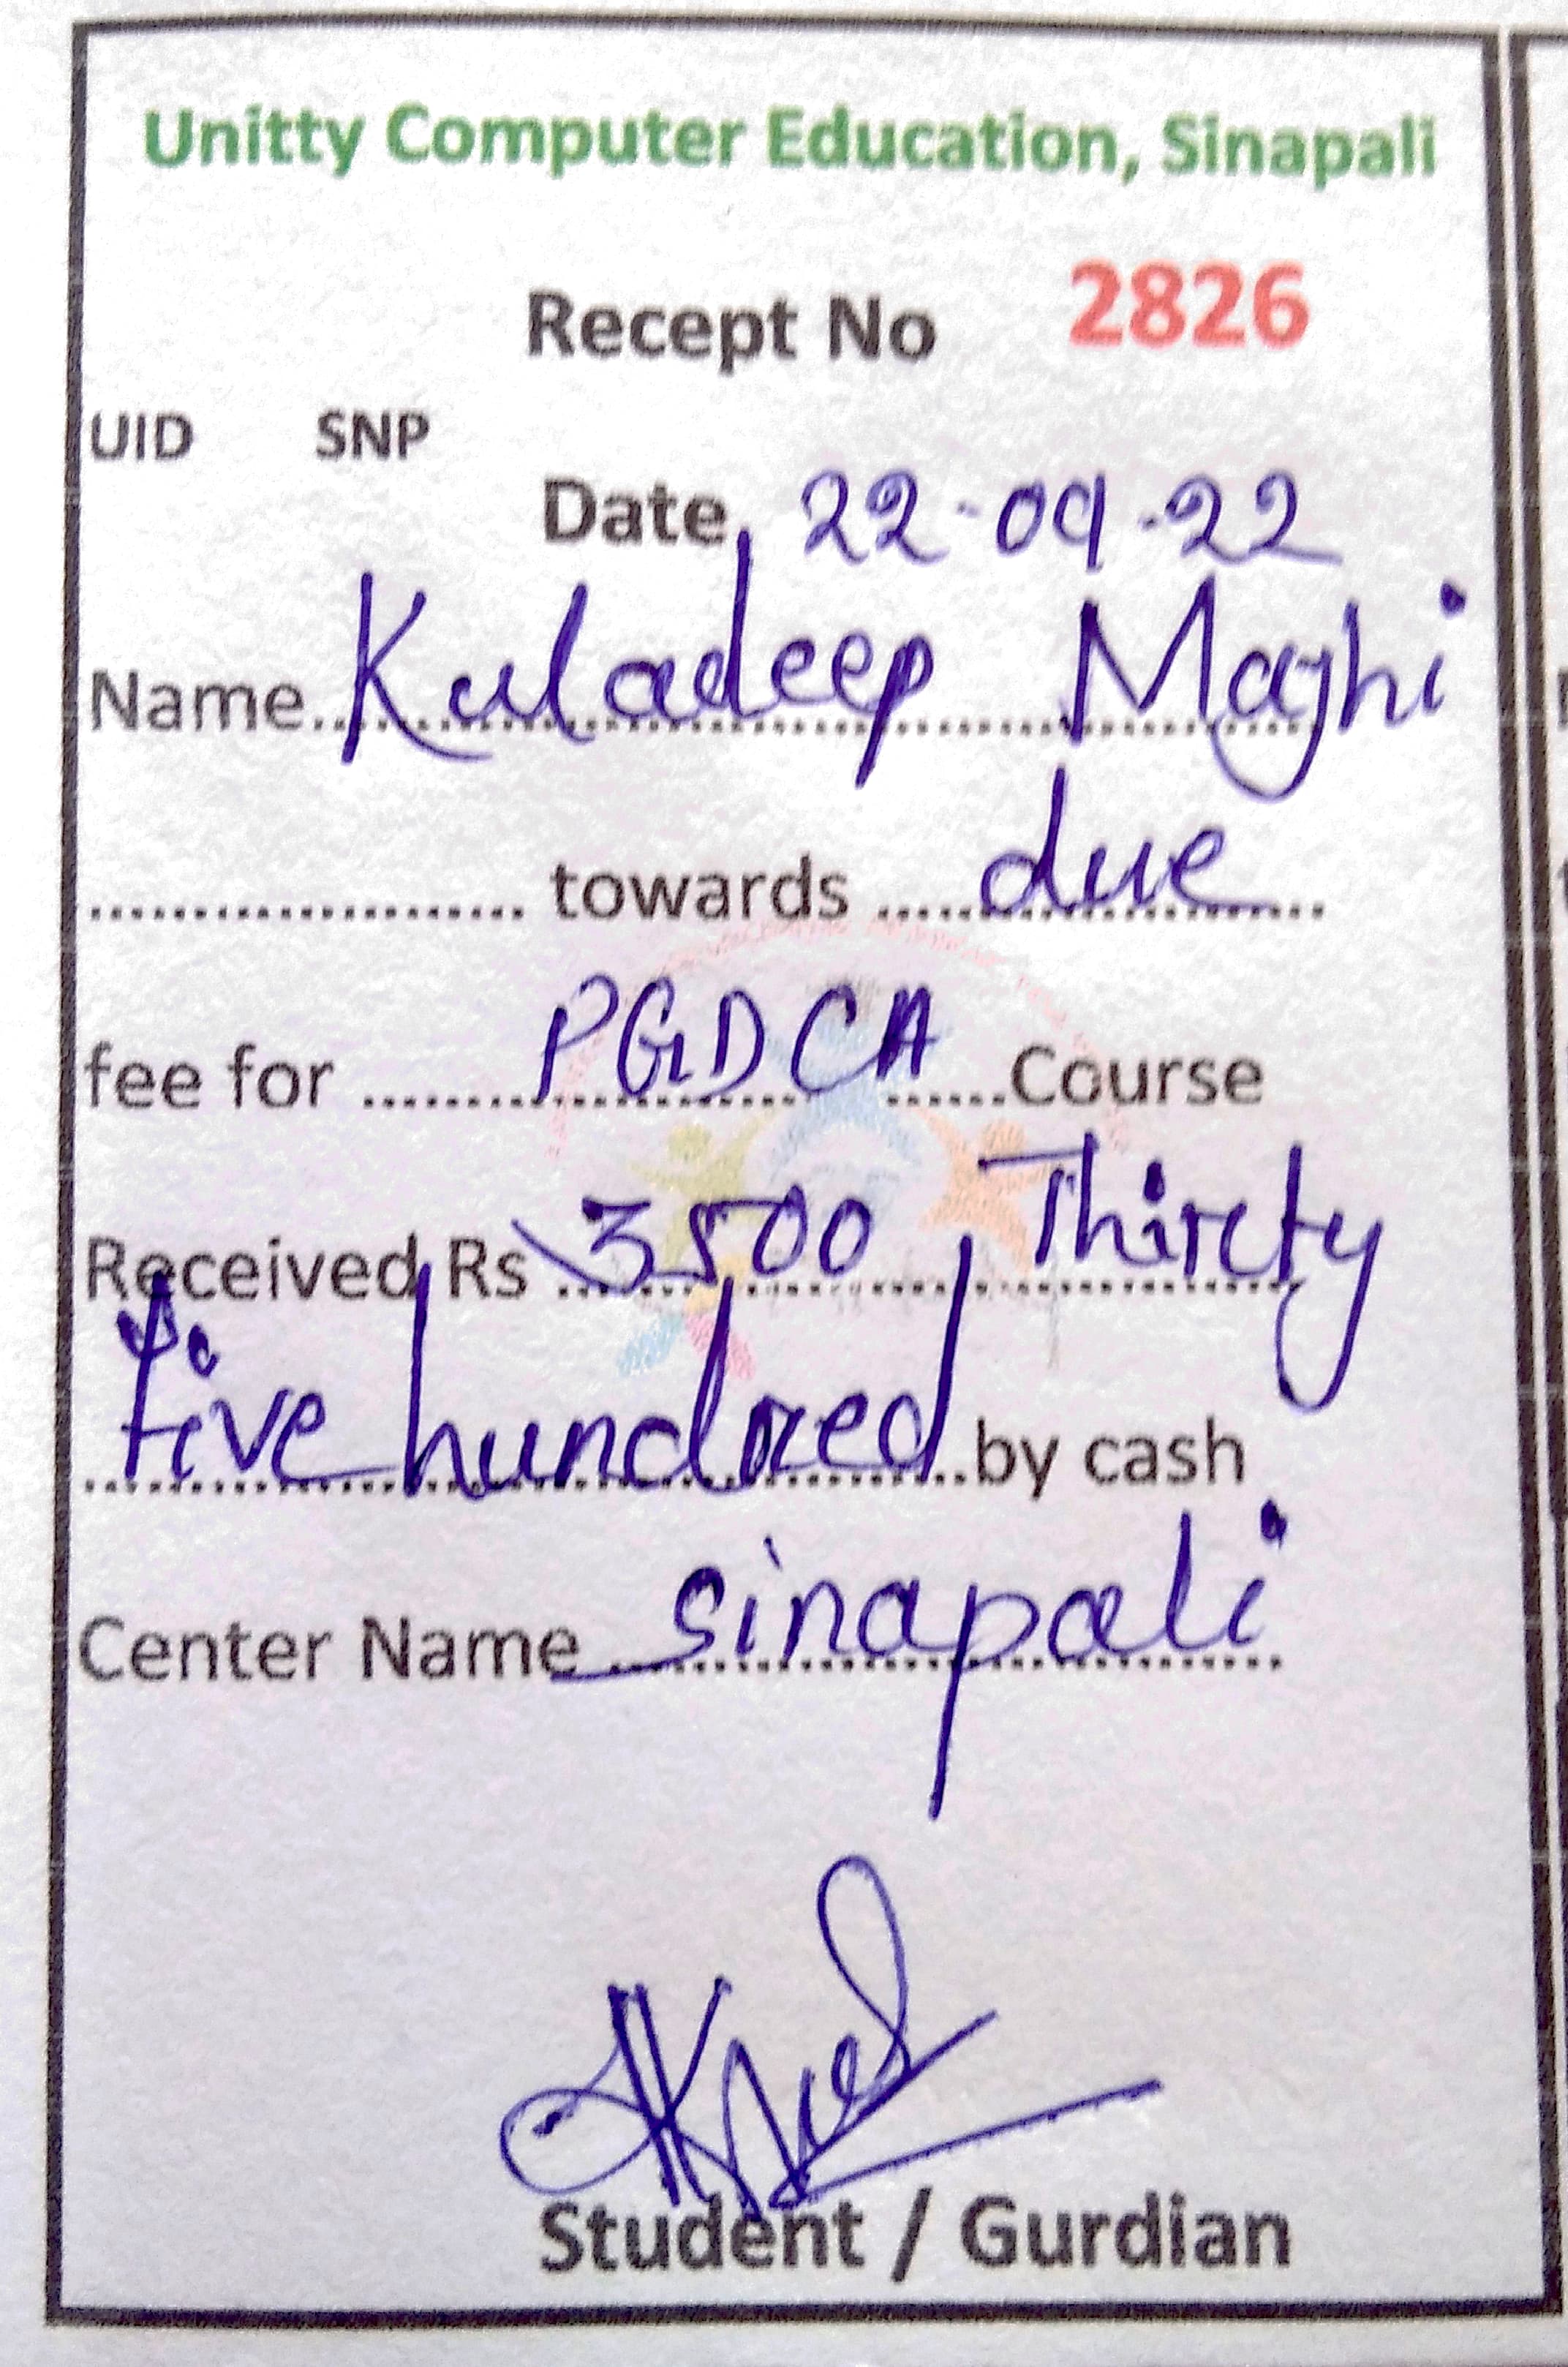 Unitty Computer Education, Sinapali
Recept No 2826
UID SNP
Date 22-09-22
Name Kuladeep Majhi
.................... towards ....due....
fee for ....PGDCA....Course
Received Rs 3500, Thirty
five hundred by cash
Center Name sinapali
Student / Gurdian